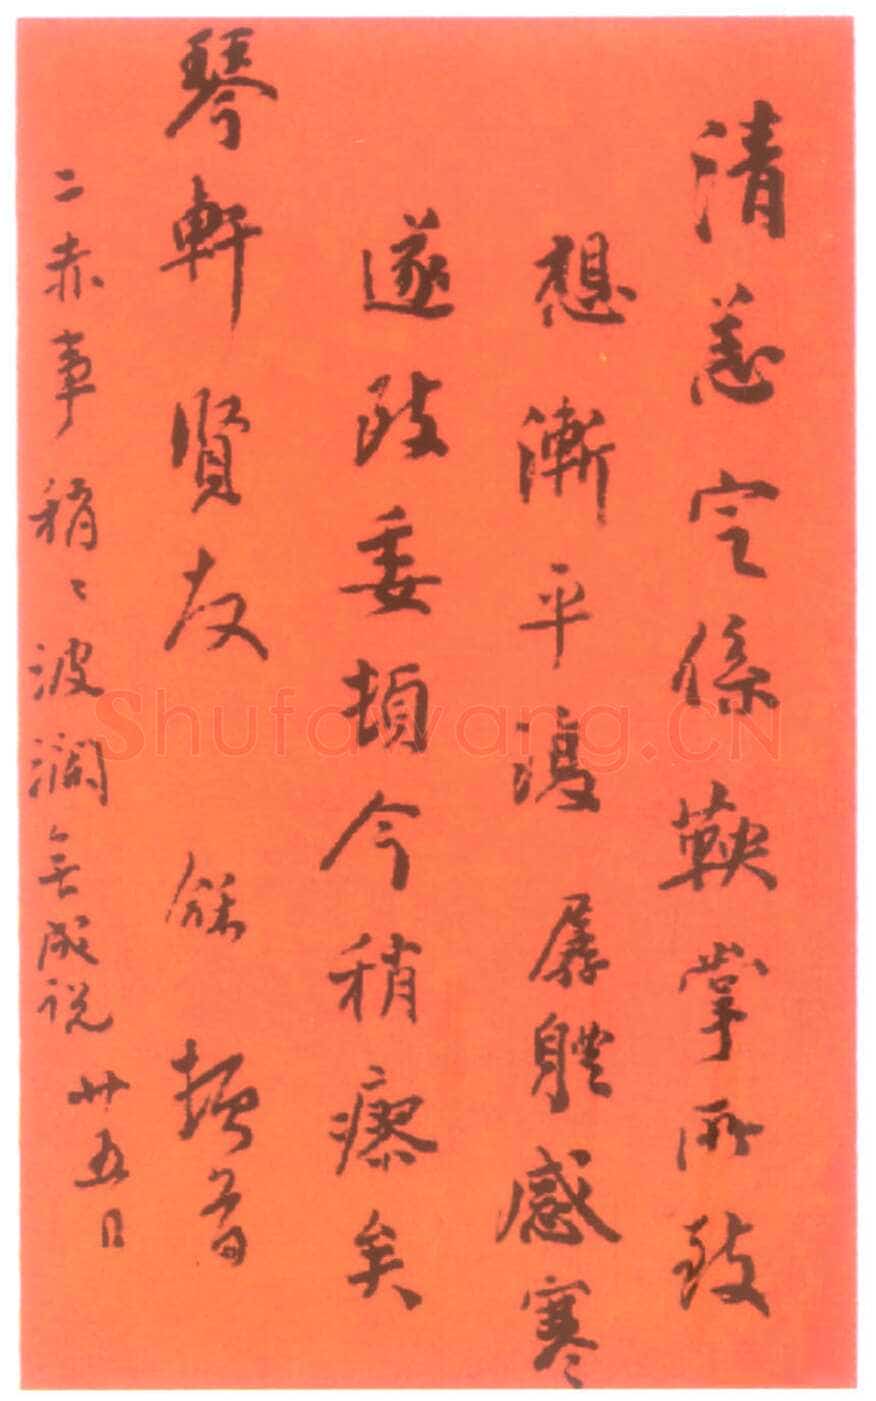 清恙定係鞅掌所致
想漸平復孱體感寒
遂致委頓今稍瘳矣
琴軒賢友 龢頓首
二赤事稍〻波瀾無成說 廿五日
Shufawang.CN